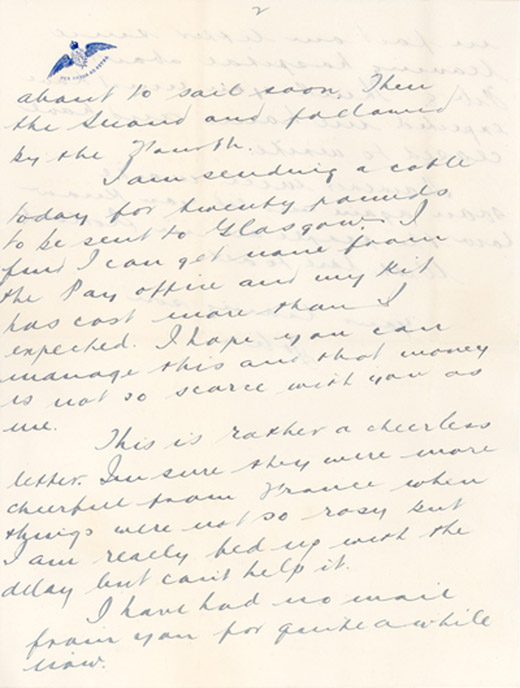 2
PER ARDUA AD ASTRA
about to sail soon. Then
the Second and followed
by the Fourth.
I am sending a cable
today for twenty pounds
to be sent to Glasgow. I
find I can get none from
the Pay office and my kit
has cost more than I
expected. I hope you can
manage this and that money
is not so scarce with you as
me.
This is rather a cheerless
letter. Im sure they were more
cheerful from France when
things were not so rosy but
I am really fed up with the
delay but cant help it.
I have had no mail
from you for quite a while
now.